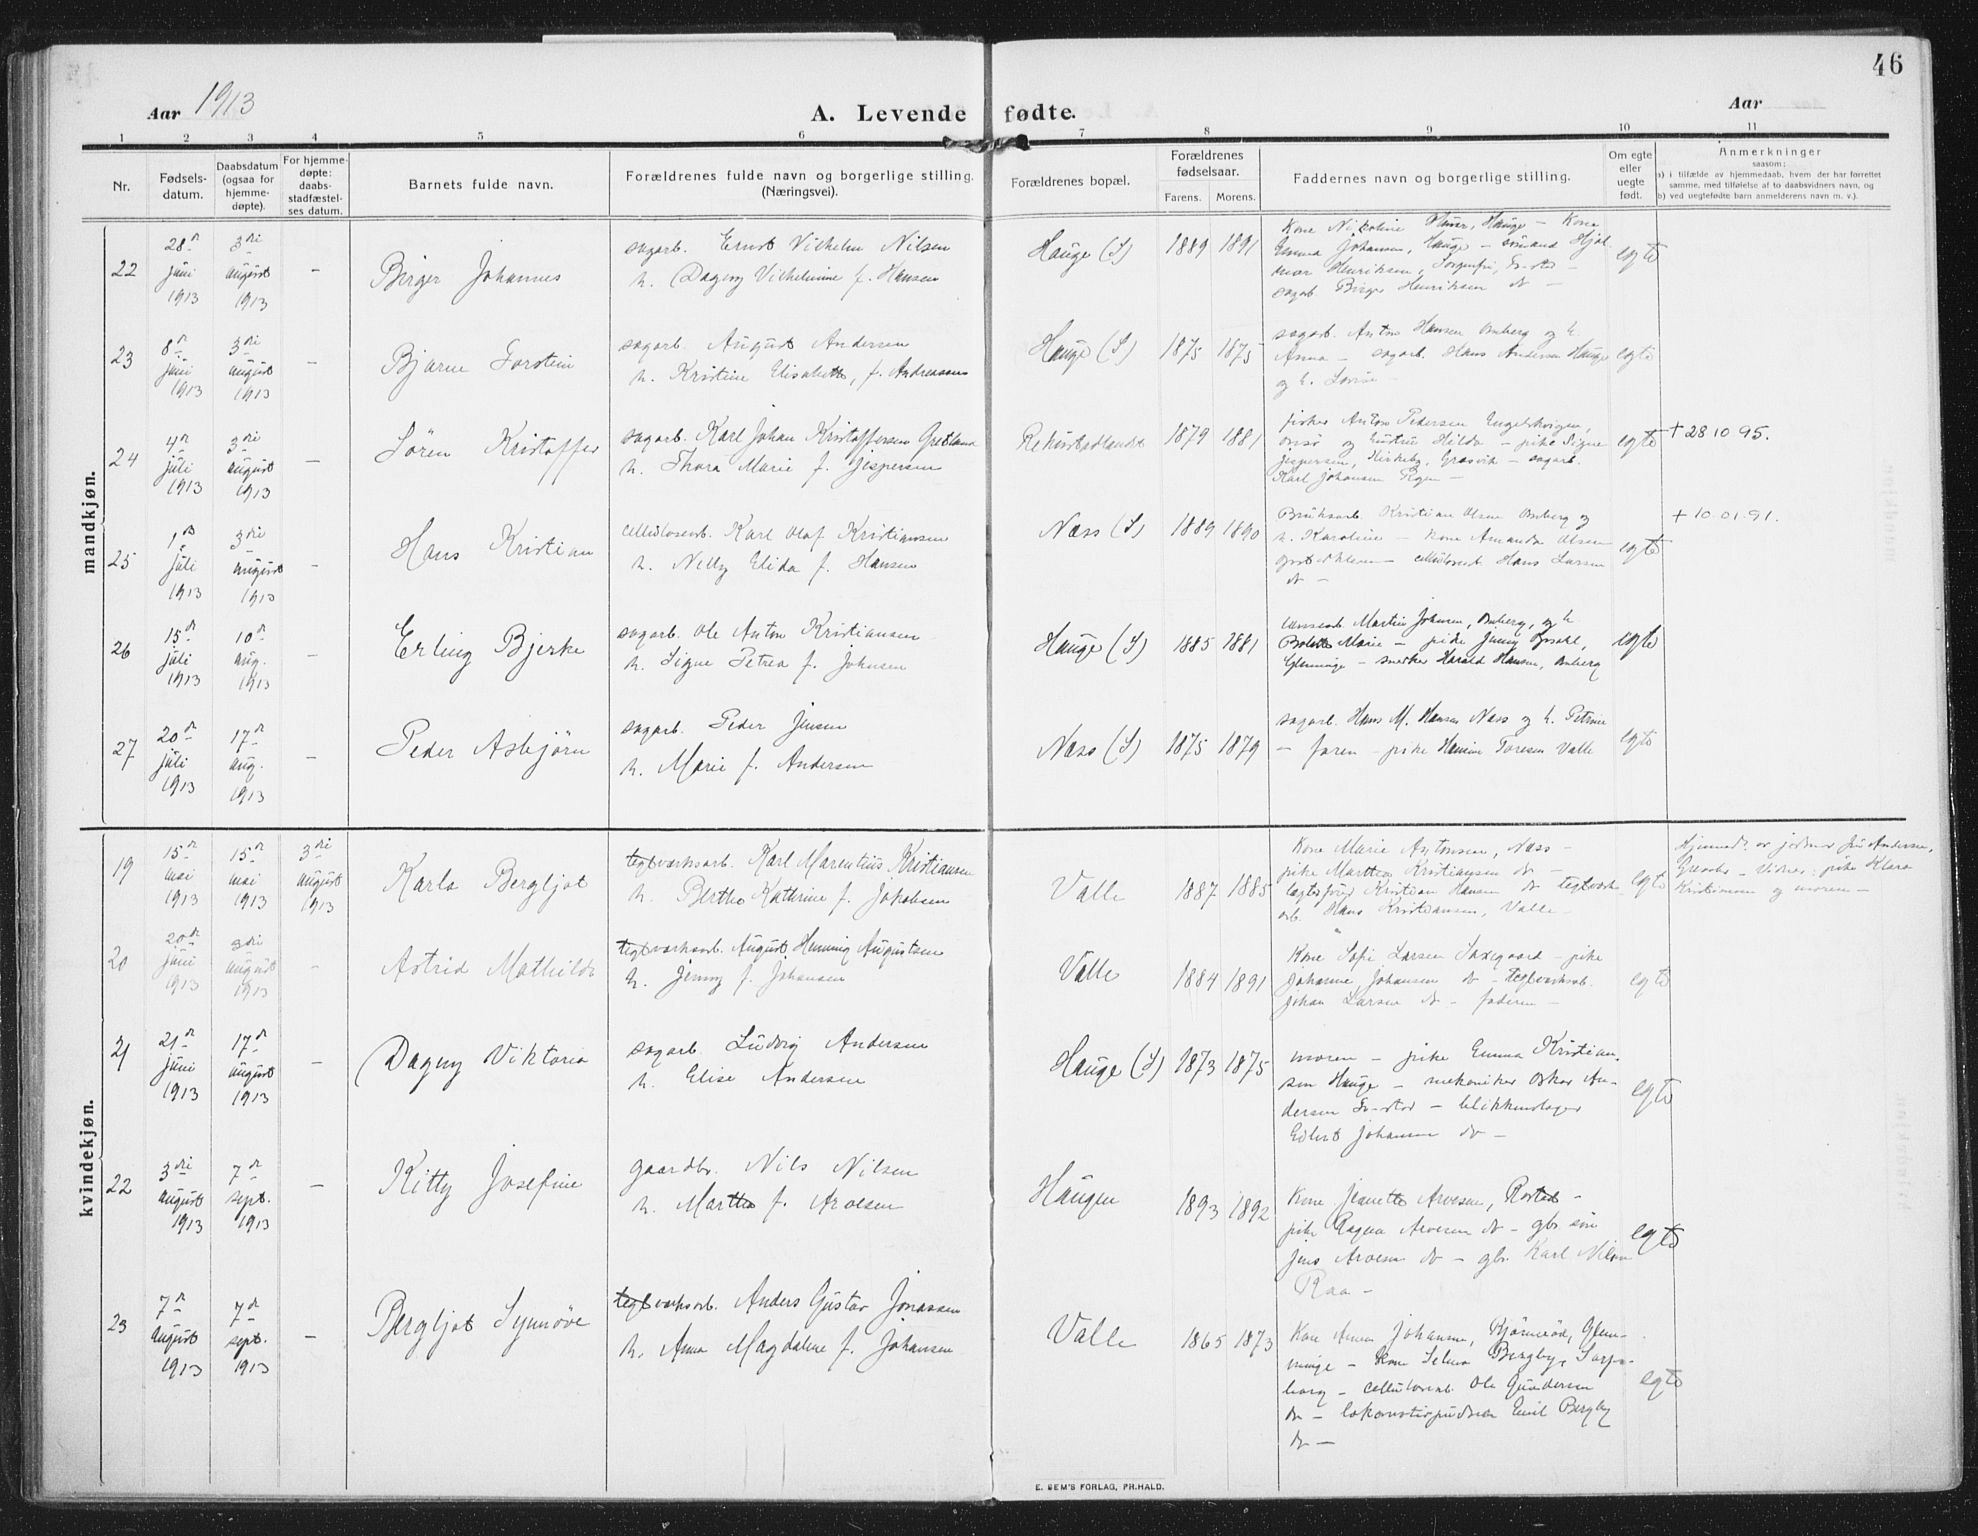 46
Aar 1913
A. Levende fødte.
Aar
1 2 3 4 5 6 7 8 9 10 11
Nr.
Fødsels-
datum.
Daabsdatum
(ogsaa for
hjemme-
døpte).
For hjemme-
døpte:
daabs-
stadfæstel-
ses datum.
Barnets fulde navn.
Forældrenes fulde navn og borgerlige stilling.
(Næringsvei).
Forældrenes bopæl.
Forældrenes
fødselsaar.
Farens. Morens.
Faddernes navn og borgerlige stilling.
Om egte
eller
uegte
født.
Anmerkninger
saasom:
a) i tilfælde av hjemmedaab, hvem der har forrettet
samme, med tilføielse af to daabsvidners navn, og
b) ved uegtefødte barn anmelderens navn m. v.).
mandkjøn.
22
28 juni 1913
3die august 1913
-
Birger Johannes
sagarb. Ernst Vilhelm Nilsen
h. Dagny Vilhelmine f. Hansen
Hauge (S) 1889 1891
Kone Nikoline Hauge - Kone
Emma Johansen, Hauge - sömand Hjal-
mar Henriksen, Sorgenfri, Fr-stad -
sagarb. Birger Henriksen do -
egte
23
8 juni 1913
3die august 1913
-
Bjarne Torstein
sagarb. August Andersen
h. Kristine Elisabeth, f. Andreassen
Hauge (S) 1875 1875
sagarb. Anton Hansen Omberg og h.
Anna - sagarb. Hans Andersen Hauge
og h. Lovise -
egte
24
4 juli 1913
3die august 1913
-
Sören Kristoffer
sagarb. Karl Johan Kristoffersen Gretland
h. Thora Marie f. Jespersen
Rekustadlandet 1879 1881
fisker Anton Pedersen Engelskvigen,
onsö og hustru Hilda - pike Signe
Jespersen, Kirkeby, Græsvik - sagarb.
Karl Johansen
egte
+28 10 95.
25
1 juli 1913
3die august 1913
-
Hans Kristian
cellulosearb. Karl Olaf Kristiansen
h. Nelly Elida f. Hansen
Næss (S) 1889 1890
Bruksarb. Kristian Olsen Omberg og
h. Karoline - kone Amanda Olsen
- cellulosearb. Hans Larsen
do -
egte
+ 10.01.91.
26
15 juli 1913
10 aug. 1913
-
Erling Bjerke
sagarb. Ole Anton Kristiansen
h. Signe Petrea f. Johnsen
Hauge (S) 1885 1881
Martin Johnsen, Omberg, og h.
Bolette Marie - pike Jenny Opsahl,
Glemminge - snekker Harald Hansen, Omberg
egte
27
20 juli 1913
17 aug. 1913
-
Peder Asbjörn
sagarb. Peder Jensen
h. Marie f. Andersen
Næss (S) 1875 1879
sagarb. Hans M. Hansen Næss og h. Petrine
- faren - pike Hansine Toresen Valle
egte
kvindekjøn.
19
15 mai 1913
15 mai 1913
3die august 1913
Karla Bergljot
teglverksarb. Karl Marentius Kristiansen
h. Berthe Kathrine f. Jakobsen
Valle 1887 1885
Kone Marie Antonsen, Næss -
pike Marthea Kristiansen do -
Kristian Hansen do teglverks-
arb. Hans Kristiansen, Valle -
egte
Hjemmed. av jordmor fru Andersen,
- Vidner: pike Klara
Kristiansen og moren -
20
20 juni 1913
3die august 1913
-
Astrid Mathilde
teglverksarb. August Henning Augustsen
h. Jenny f. Johansen
Valle 1884 1891
Kone Sofi Larsen Saxegaard - pike
Johanne Johansen do - teglverksarb.
Johan Larsen do - faderen -
egte
21
21 juni 1913
17 august 1913
-
Dagny Viktoria
sagarb. Ludvig Andersen
h. Elise Andersen
Hauge (S) 1873 1875
moren - pike Emma Kristian-
sen Hauge - mekaniker Oskar An-
dersen Fr-stad - blikkenslager
Edvert Johansen do -
egte
22
3die august 1913
7 sept. 1913
-
Kitty Josefine
gaardbr. Nils Nilsen
h. Marthe f. Arvesen
Haugen 1893 1892
Kone Jeanette Arvesen, Rostad -
pike Ragna Arvesen do - gbr. sön
Jens Arvesen do - gbr. Karl Nilsen
Raa -
egte
23
7 august 1913
7 sept. 1913
-
Bergljot Synnöve
teglverksarb. Anders Gustav Jonassen
h. Anna Magdalene f. Johansen
Valle 1865 1873
Kone Anna Johanne, Björneröd, Glem-
minge - kone Selma Bergby, Sarps-
borg - cellulosearb. Ole Gundersen
do - lokomotivpudser Emil Bergby
do -
egte
E. SEM'S FORLAG, FR.HALD.